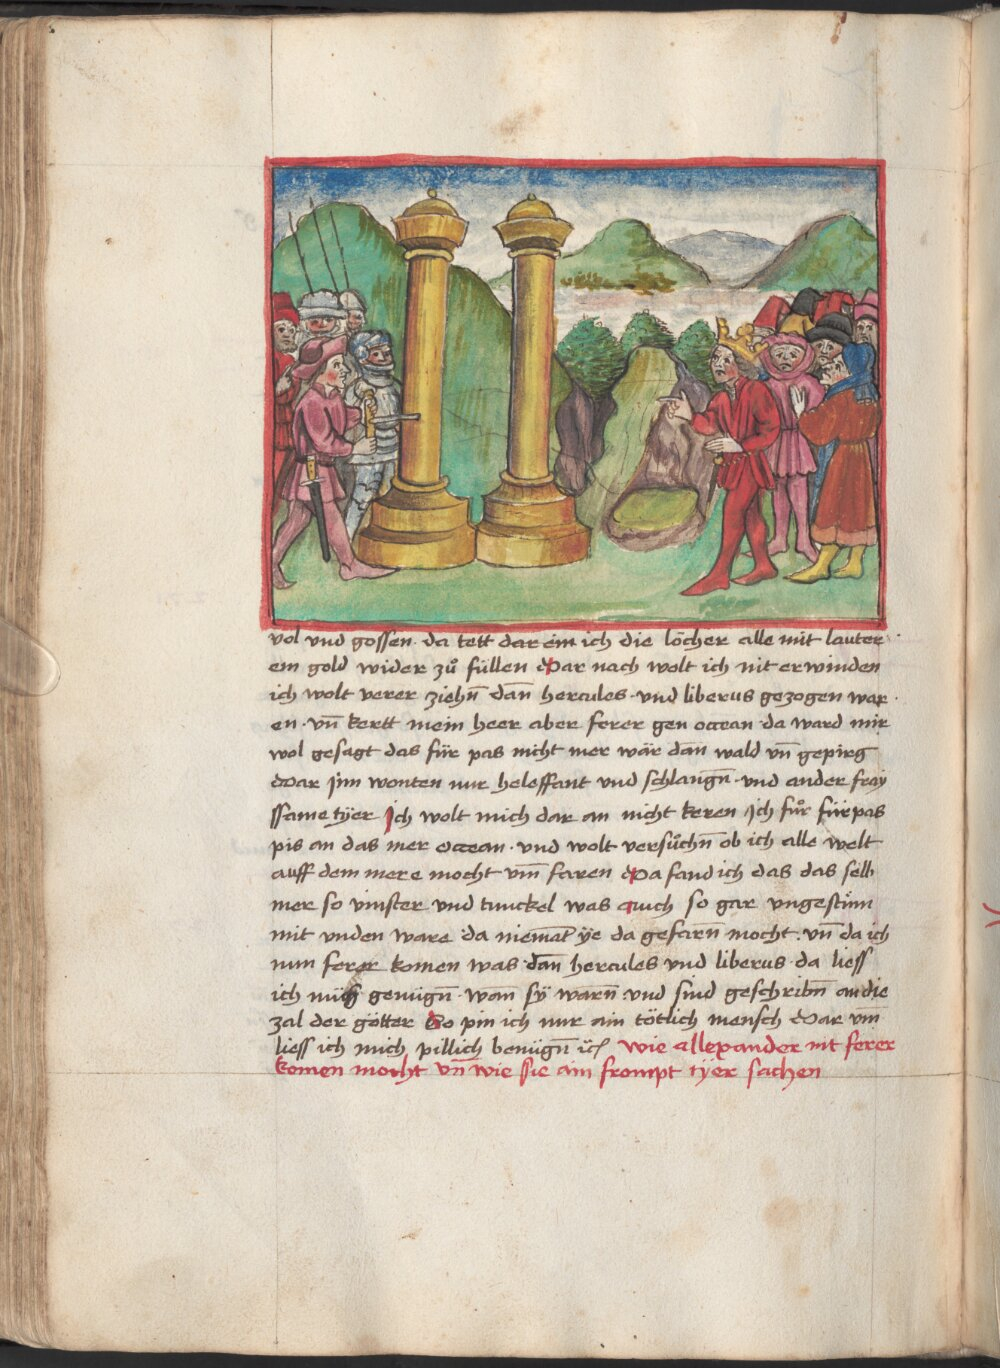 vol vnd gossen · da tett dar ein ich die löcher alle mit lauter
em gold wider zů füllen Dar nach wolt ich nit erwinden
ich wolt verer ziehn̄ dan̄ hercules · vnd liberus gezogen war ·
en · vn̄ kertt mein heer aber ferer gen occean · da ward mir
wol gesagt das für pas nicht mer wär dan̄ wald vn̄ gepirg
Dar jnn wonten nur heleffant vnd schlangn̄ · vnd ander fray
ssame tÿer Ich wolt mich dar an nicht keren Ich fůr fürpas
pis an das mer occean · vnd wolt versůchn̄ ob ich alle welt
auff dem mere mocht vm̄ faren Da fand ich das das selb
mer so vinster vnd tunckel was auch so gar vngestüm
mit vnden ware da nieman̄t ÿe da gefarn̄ mocht · vn̄ da ich
nun ferer komen was dan̄ hercules vnd liberus · da liess
ich mich genügn̄ · wan̄ sÿ warn̄ vnd sind geschribn̄ an die
zal der götter So pin ich nur ain tötlich mensch Dar vm̄
liess ich mich pillich benügn̄ ⁊c̄ wie allexander nit ferer
komen mocht vn̄ wie sie am frompt tÿer sachen